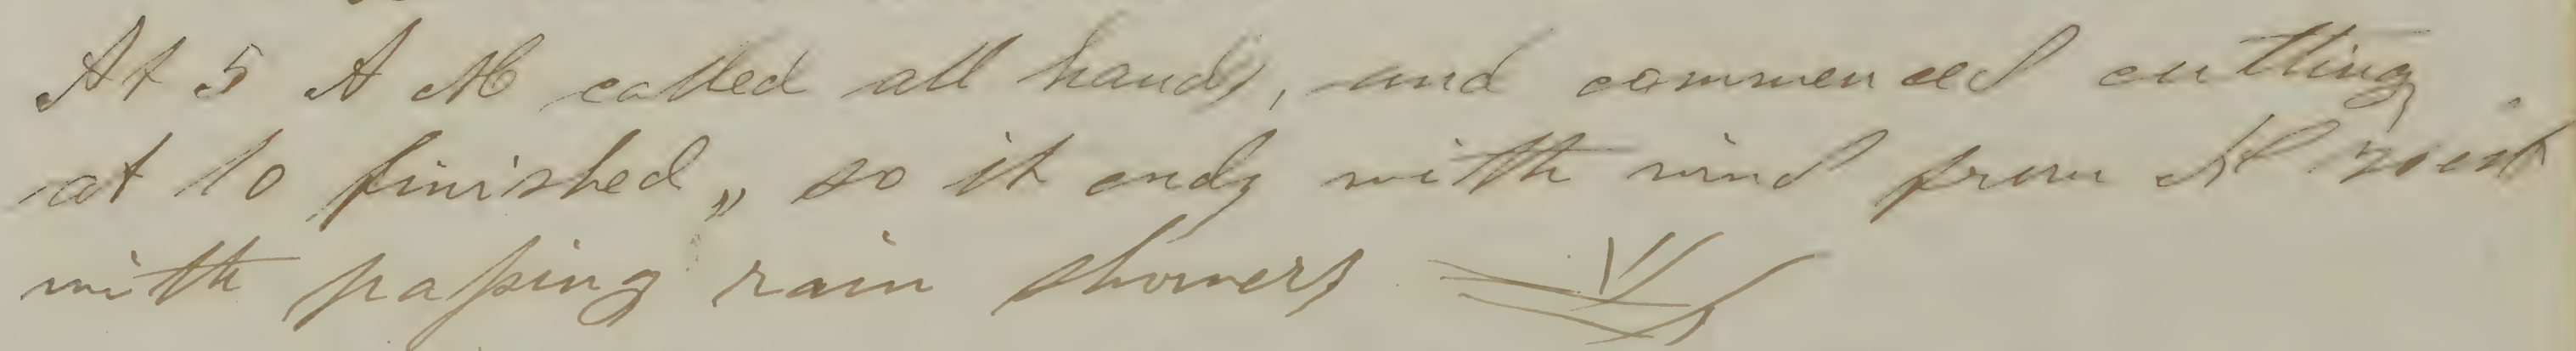 At 5 A M called all hands, and commenced cutting
at 10 finished „ so it ends with wind from N West
with passing rain showers